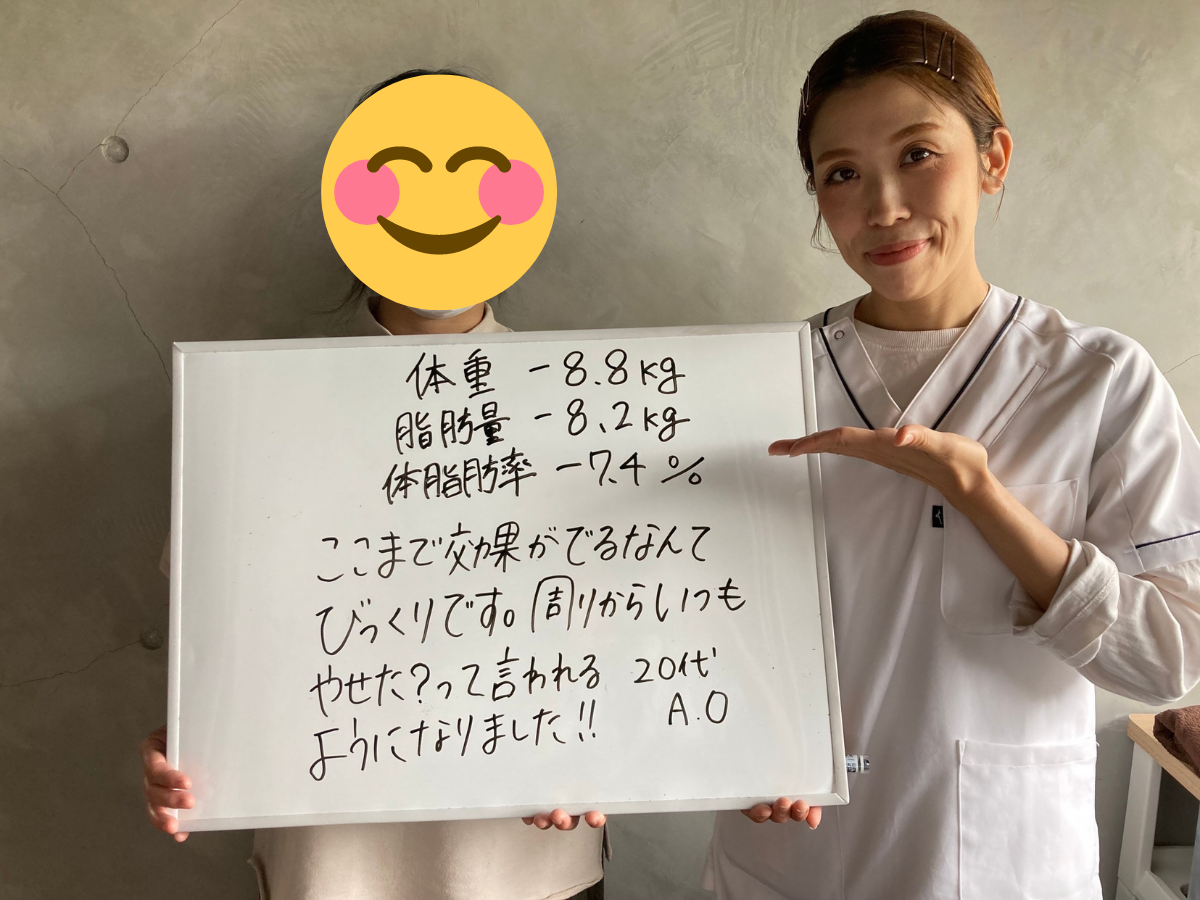 体重 -8.8kg
脂肪量 -8.2kg
体脂肪率 -7.4%
ここまで効果がでるなんて
びっくりです。周りからいつも
やせた?って言われる 20代
ようになりました!! A.O